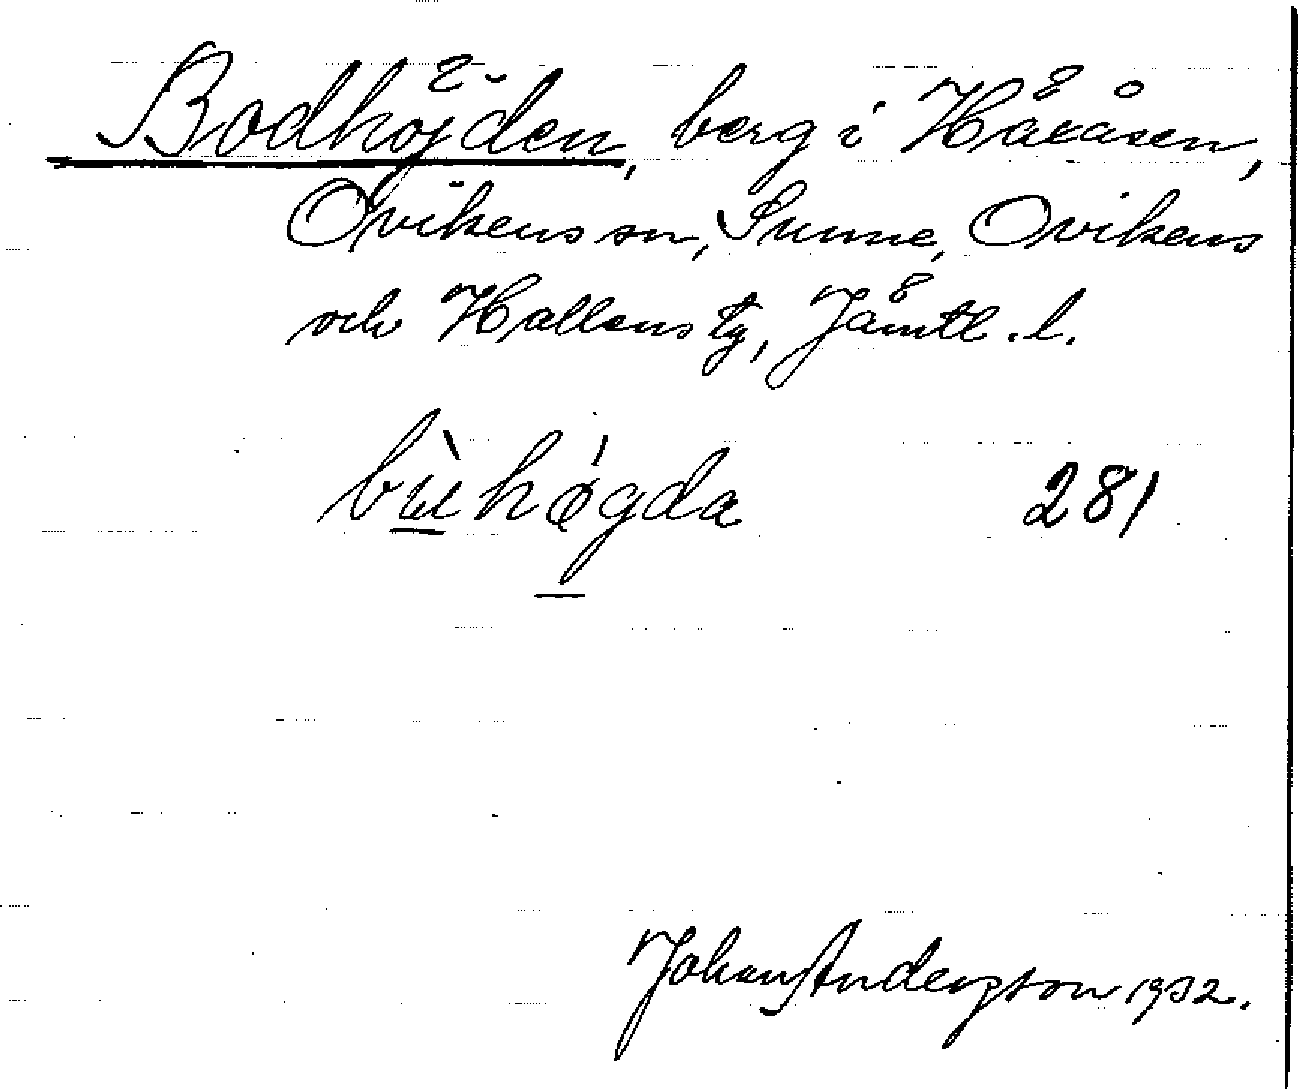 Bodhöjden, berg i Håkåsen,
Ovikens sn, Sunne, Ovikens
och Hallens tg, Jämtl. l.
281
Johan Anderzson 1932.